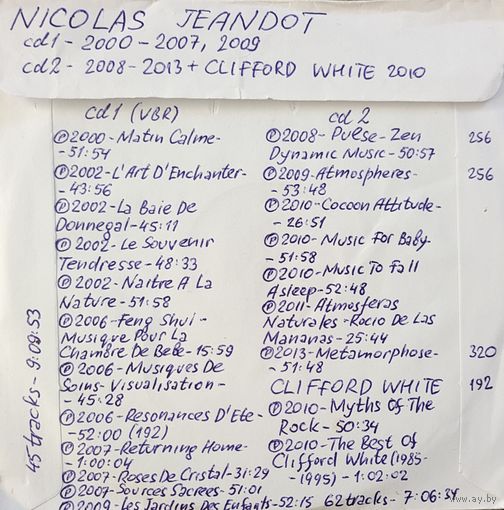 NICOLAS JEANDOT
cd1 - 2000 - 2007, 2009
cd2 - 2008 - 2013 + CLIFFORD WHITE 2010
cd1 (VBR)
℗2000-Matin Calme-
-51:54
℗2002-L'Art D'Enchanter-
-43:56
℗2002-La Baie De
Donnegal-45:11
℗2002-Le Souvenir
Tendresse-48:33
℗2002-Naitre A La
Nature-51:58
℗2006-Feng Shui-
Musique Pour La
Chambre De Bebe-15:59
℗2006-Musiques De
Soins-Visualisation-
-45:28
℗2006-Resonances D'Ete-
-52:00 (192)
℗2007-Returning Home-
-1:00:04
℗2007-Roses De Cristal-31:29
℗2007-Sources Sacrees-51:01
℗2009-Les Jardins Des Enfants-52:15
45 tracks-9:09:53
cd2
℗2008-Pulse-Zen
Dynamic Music-50:57
256
℗2009-Atmospheres-
-53:48
256
℗2010-Cocoon Attitude-
-26:51
℗2010-Music For Baby-
-51:58
℗2010-Music To Fall
Asleep-52:48
℗2011-Atmosferas
Naturales-Rocio De Las
Mananas-25:44
℗2013-Metamorphose-
-51:48
320
CLIFFORD WHITE
192
℗2010-Myths Of The
Rock-50:34
℗2010-The Best Of
Clifford White (1985-
-1995)-1:02:02
62 tracks-7:06:34
www.ay.by